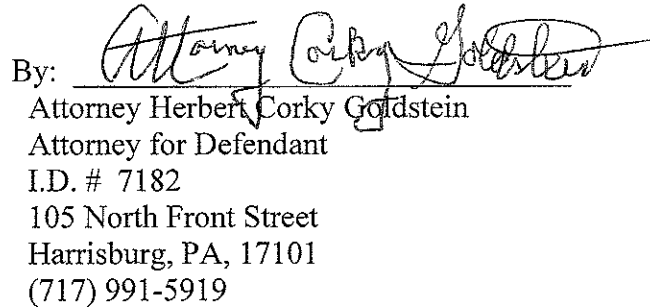 By: Attorney Corky Goldstein
Attorney Herbert Corky Goldstein
Attorney for Defendant
I.D. # 7182
105 North Front Street
Harrisburg, PA, 17101
(717) 991-5919